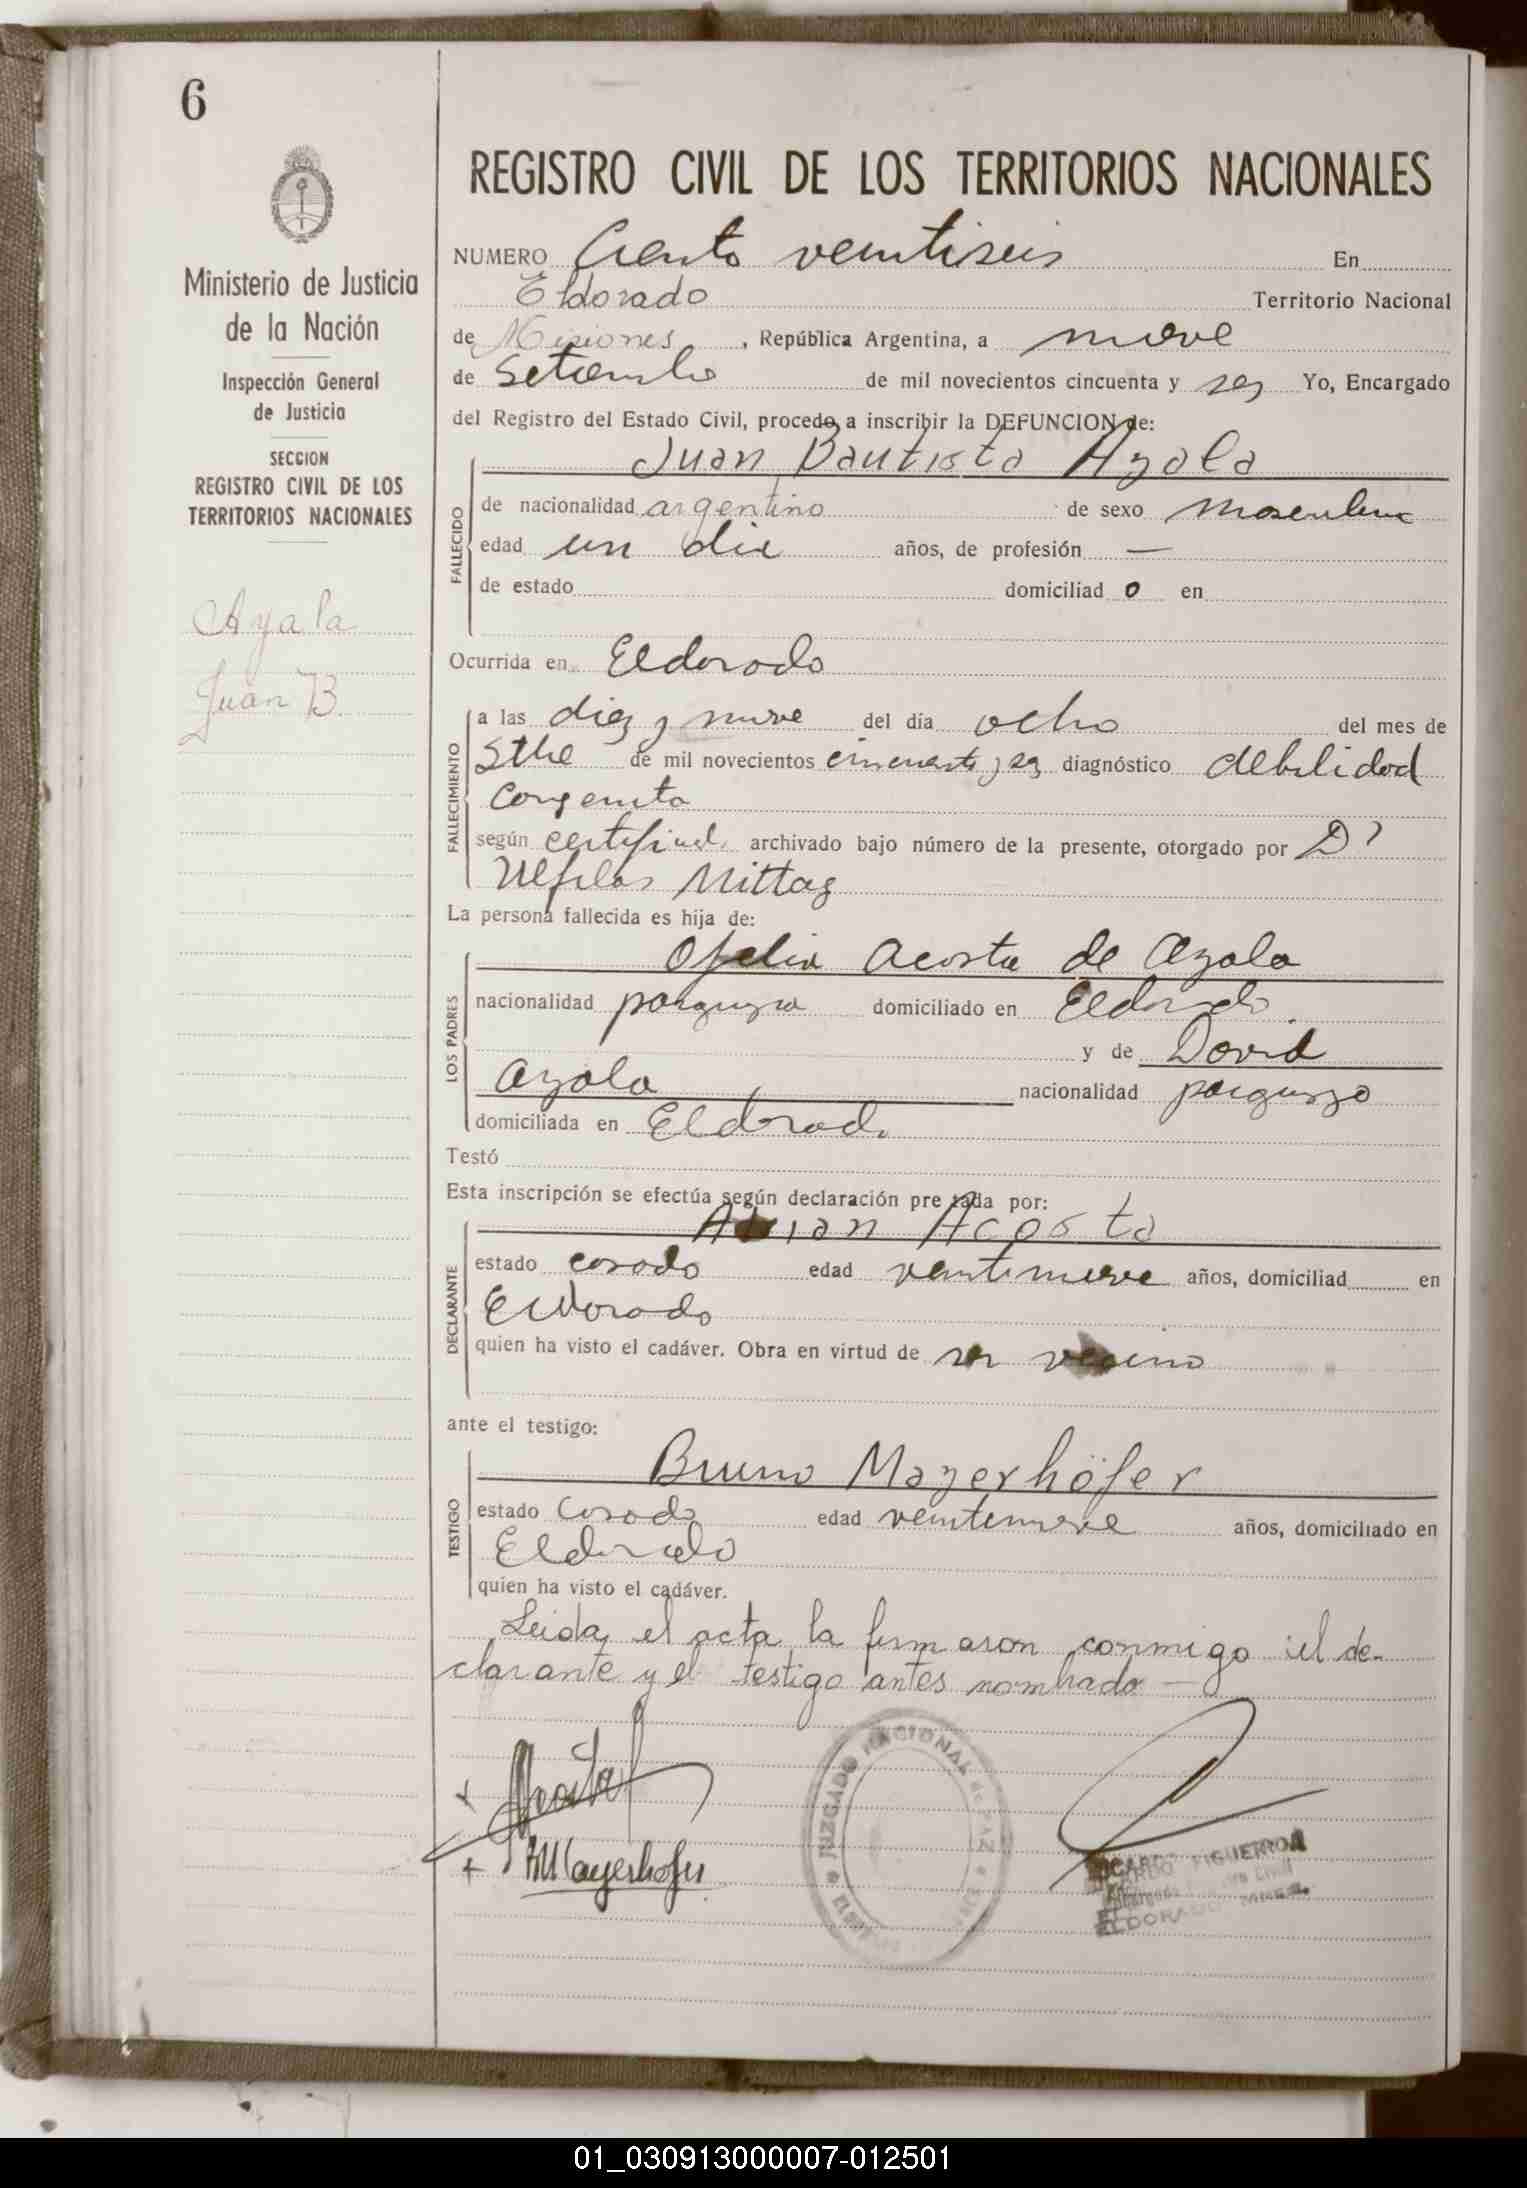 6
Ministerio de Justicia
de la Nación
Inspección General
de Justicia
SECCION
REGISTRO CIVIL DE LOS
TERRITORIOS NACIONALES
Ayala
Juan B.
REGISTRO CIVIL DE LOS TERRITORIOS NACIONALES
NUMERO Ciento veintiseis En
Eldorado Territorio Nacional
de Misiones, República Argentina, a nueve
de Setiembre de mil novecientos cincuenta y seis Yo, Encargado
del Registro del Estado Civil, procedo a inscribir la DEFUNCION de:
Juan Bautista Ayala
FALLECIDO
de nacionalidad argentino de sexo masculino
edad un dia años, de profesión —
de estado domiciliad o en
Ocurrida en Eldorado
FALLECIMIENTO
a las diez y nueve del día ocho del mes de
Stbe de mil novecientos cincuenta y seis diagnóstico debilidad
congenita
según certificad. archivado bajo número de la presente, otorgado por Dr
Ulfilas Mittag
La persona fallecida es hija de:
LOS PADRES
Ofelia Acosta de Ayala
nacionalidad paraguaya domiciliado en Eldorado.
y de David
Ayala nacionalidad paraguayo
domiciliada en Eldorado
Testó
Esta inscripción se efectúa según declaración pre tada por:
DECLARANTE
Acosta
estado casado edad veintinueve años, domiciliad en
Eldorado
quien ha visto el cadáver. Obra en virtud de ser vecino
ante el testigo:
TESTIGO
Bruno Mayerhöfer
estado casado edad veintinueve años, domiciliado en
Eldorado
quien ha visto el cadáver.
Leida el acta la firmaron conmigo el de-
clarante y el testigo antes nombrado —
Acosta
BMayerhofer
JUZGADO NACIONAL de PAZ
FIGUEROA
ELDORADO
01_030913000007-012501